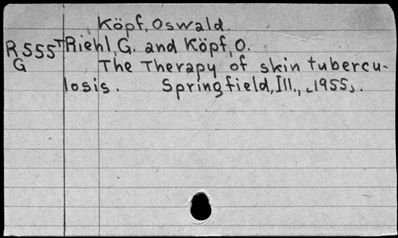 Köpf, Oswald.
R555T Riehl, G. and Köpf, O.
G The Therapy of skin tubercu-
losis. Springfield, Ill., [1955].